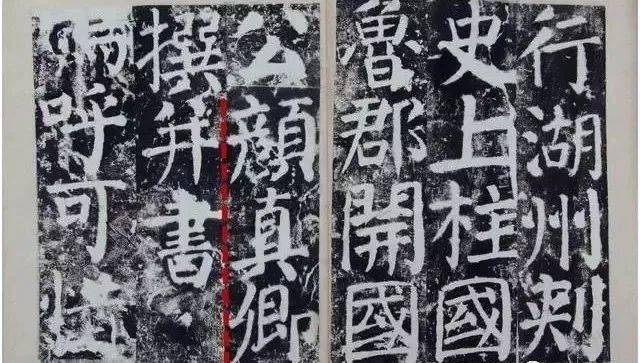 行湖州刺
史上柱國
魯郡開國
公顏真卿
撰并書
呼可